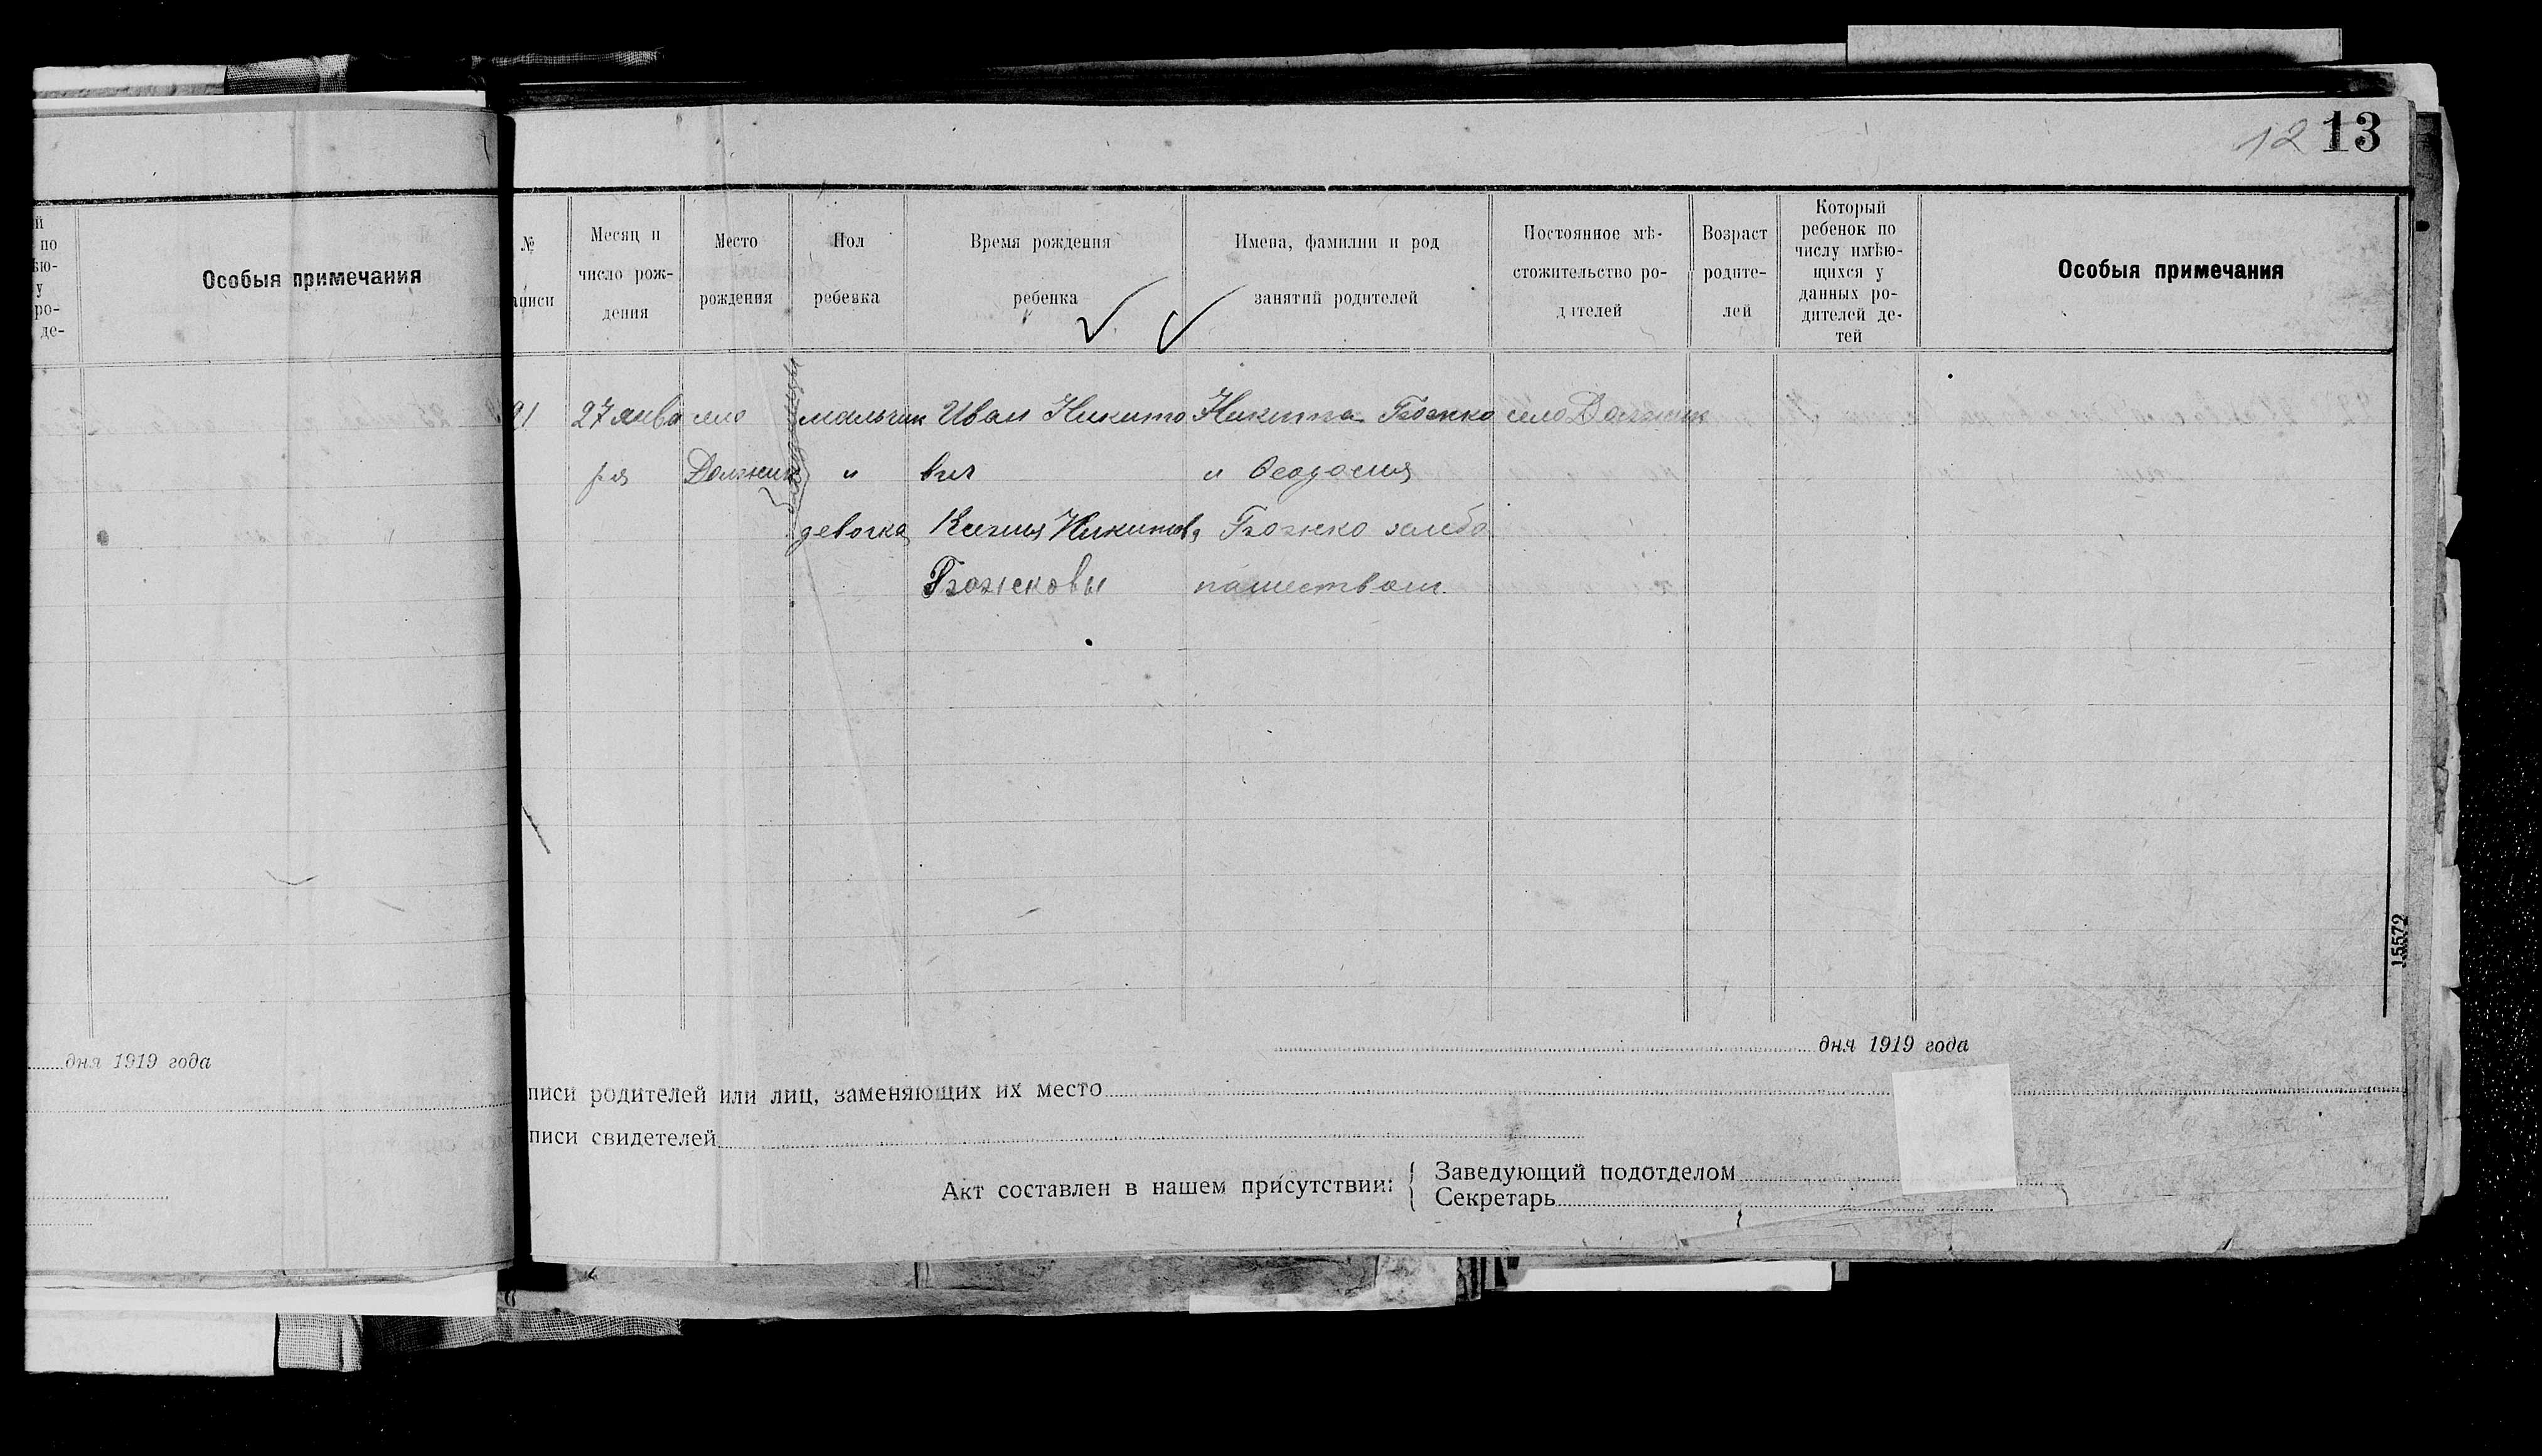 12 13
й
по
ѣю-
у
ро-
де-
Особыя примечания
дня 1919 года
№
аписи
Месяц и
число рож-
дения
Место
рождения
Пол
ребенка
Время рождения
ребенка
Имена, фамилии и род
занятий родителей
Постоянное мѣ-
стожительство ро-
дителей
Возраст
родите-
лей
Который
ребенок по
числу имѣю-
щихся у
данных ро-
дителей де-
тей
Особыя примечания
21 27 янва село мальчик Иван Никито Никита Божко село Должик
ря Должик " вич и Феодосия
девочка Ксения Никитов, Божко хлебо
Божковы пашеством
15572
дня 1919 года
писи родителей или лиц, заменяющих их место
писи свидетелей
Акт составлен в нашем присутствии:
Заведующий подотделом
Секретарь